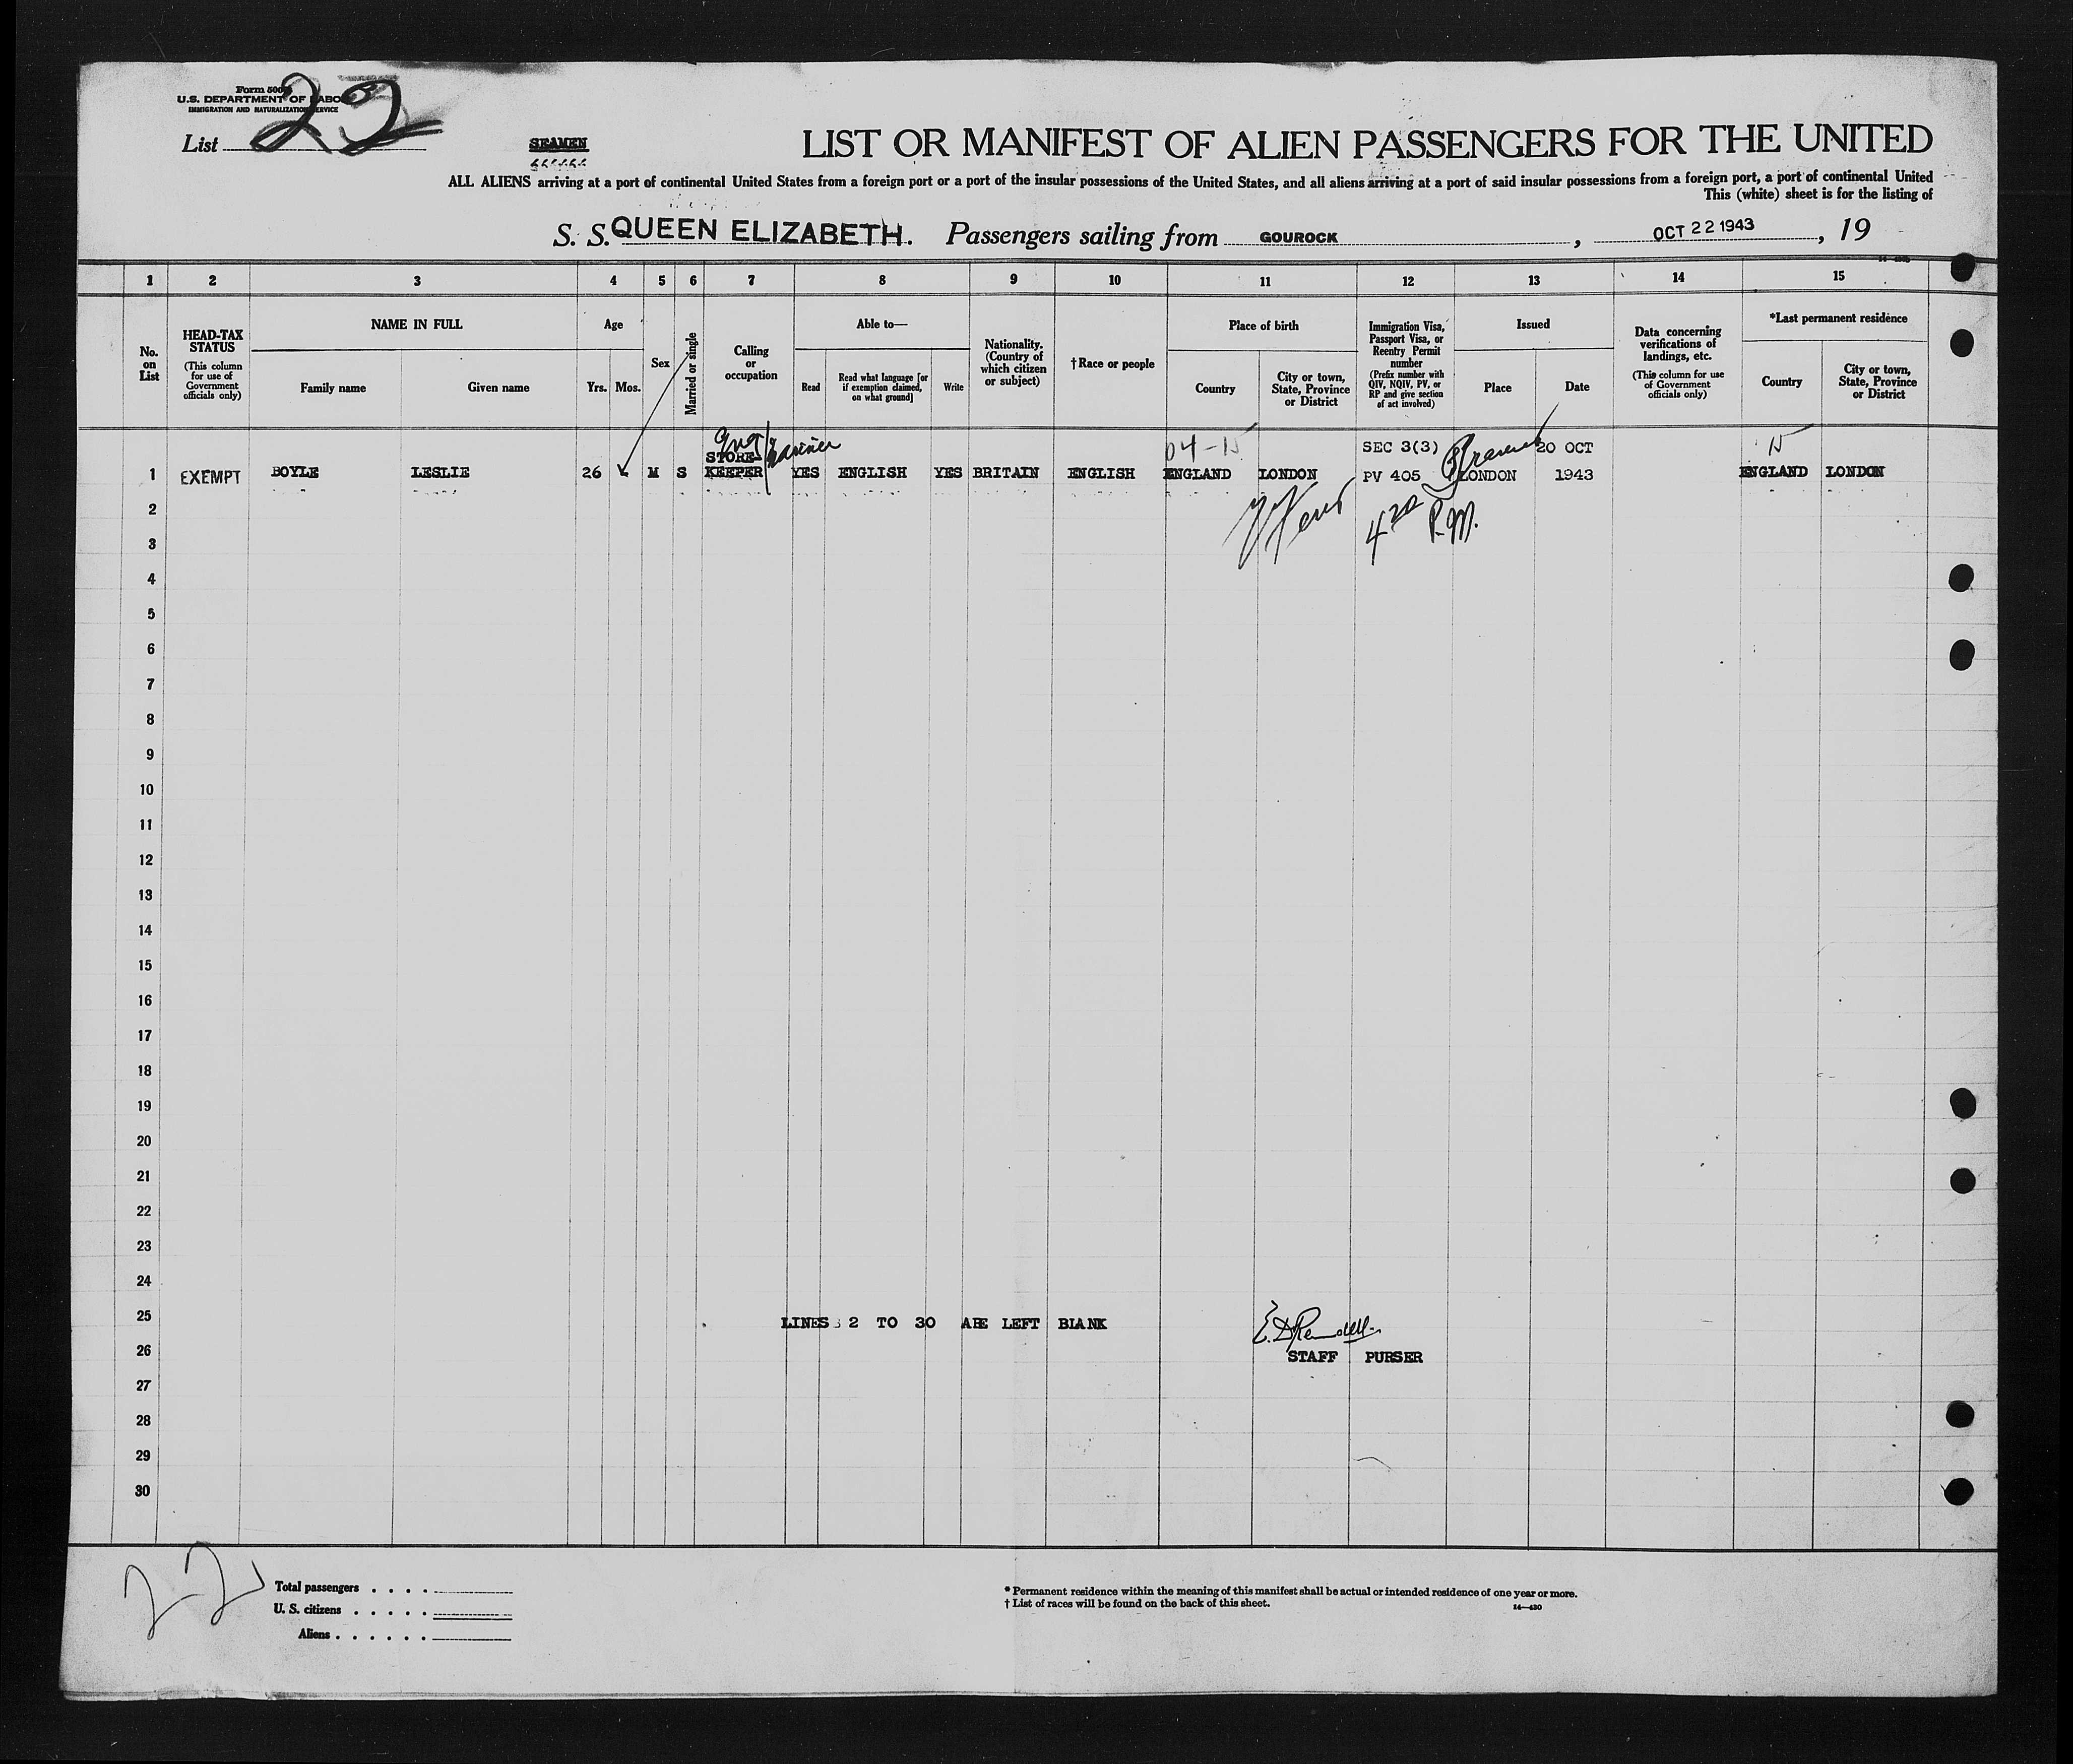 Form 500
U.S. DEPARTMENT OF LABOR
IMMIGRATION AND NATURALIZATION SERVICE
List 22
SEAMEN
LIST OR MANIFEST OF ALIEN PASSENGERS FOR THE UNITED
ALL ALIENS arriving at a port of continental United States from a foreign port or a port of the insular possessions of the United States, and all aliens arriving at a port of said insular possessions from a foreign port, a port of continental United
This (white) sheet is for the listing of
S. S. QUEEN ELIZABETH. Passengers sailing from GOUROCK, OCT 22 1943, 19
1 2 3 4 5 6 7 8 9 10 11 12 13 14 15
No. on List
HEAD-TAX STATUS
(This column for use of Government officials only)
NAME IN FULL
Family name
Given name
Age
Yrs.
Mos.
Sex
Married or single
Calling or occupation
Able to—
Read
Read what language [or if exemption claimed, on what ground]
Write
Nationality. (Country of which citizen or subject)
†Race or people
Place of birth
Country
City or town, State, Province or District
Immigration Visa, Passport Visa, or Reentry Permit number
(Prefix number with QIV, NQIV, PV, or RP and give section of act involved)
Issued
Place
Date
Data concerning verifications of landings, etc.
(This column for use of Government officials only)
*Last permanent residence
Country
City or town, State, Province or District
STORE- 04-15 SEC 3(3) 20 OCT 15
1 EXEMPT BOYLE LESLIE 26 M S KEEPER YES ENGLISH YES BRITAIN ENGLISH ENGLAND LONDON PV 405 LONDON 1943 ENGLAND LONDON
2
P.M.
3
4
5
6
7
8
9
10
11
12
13
14
15
16
17
18
19
20
21
22
23
24
25 LINES 2 TO 30 ARE LEFT BLANK
26 STAFF PURSER
27
28
29
30
22
Total passengers . . . .
U. S. citizens . . . . .
Aliens . . . . . .
* Permanent residence within the meaning of this manifest shall be actual or intended residence of one year or more.
† List of races will be found on the back of this sheet.
14—430